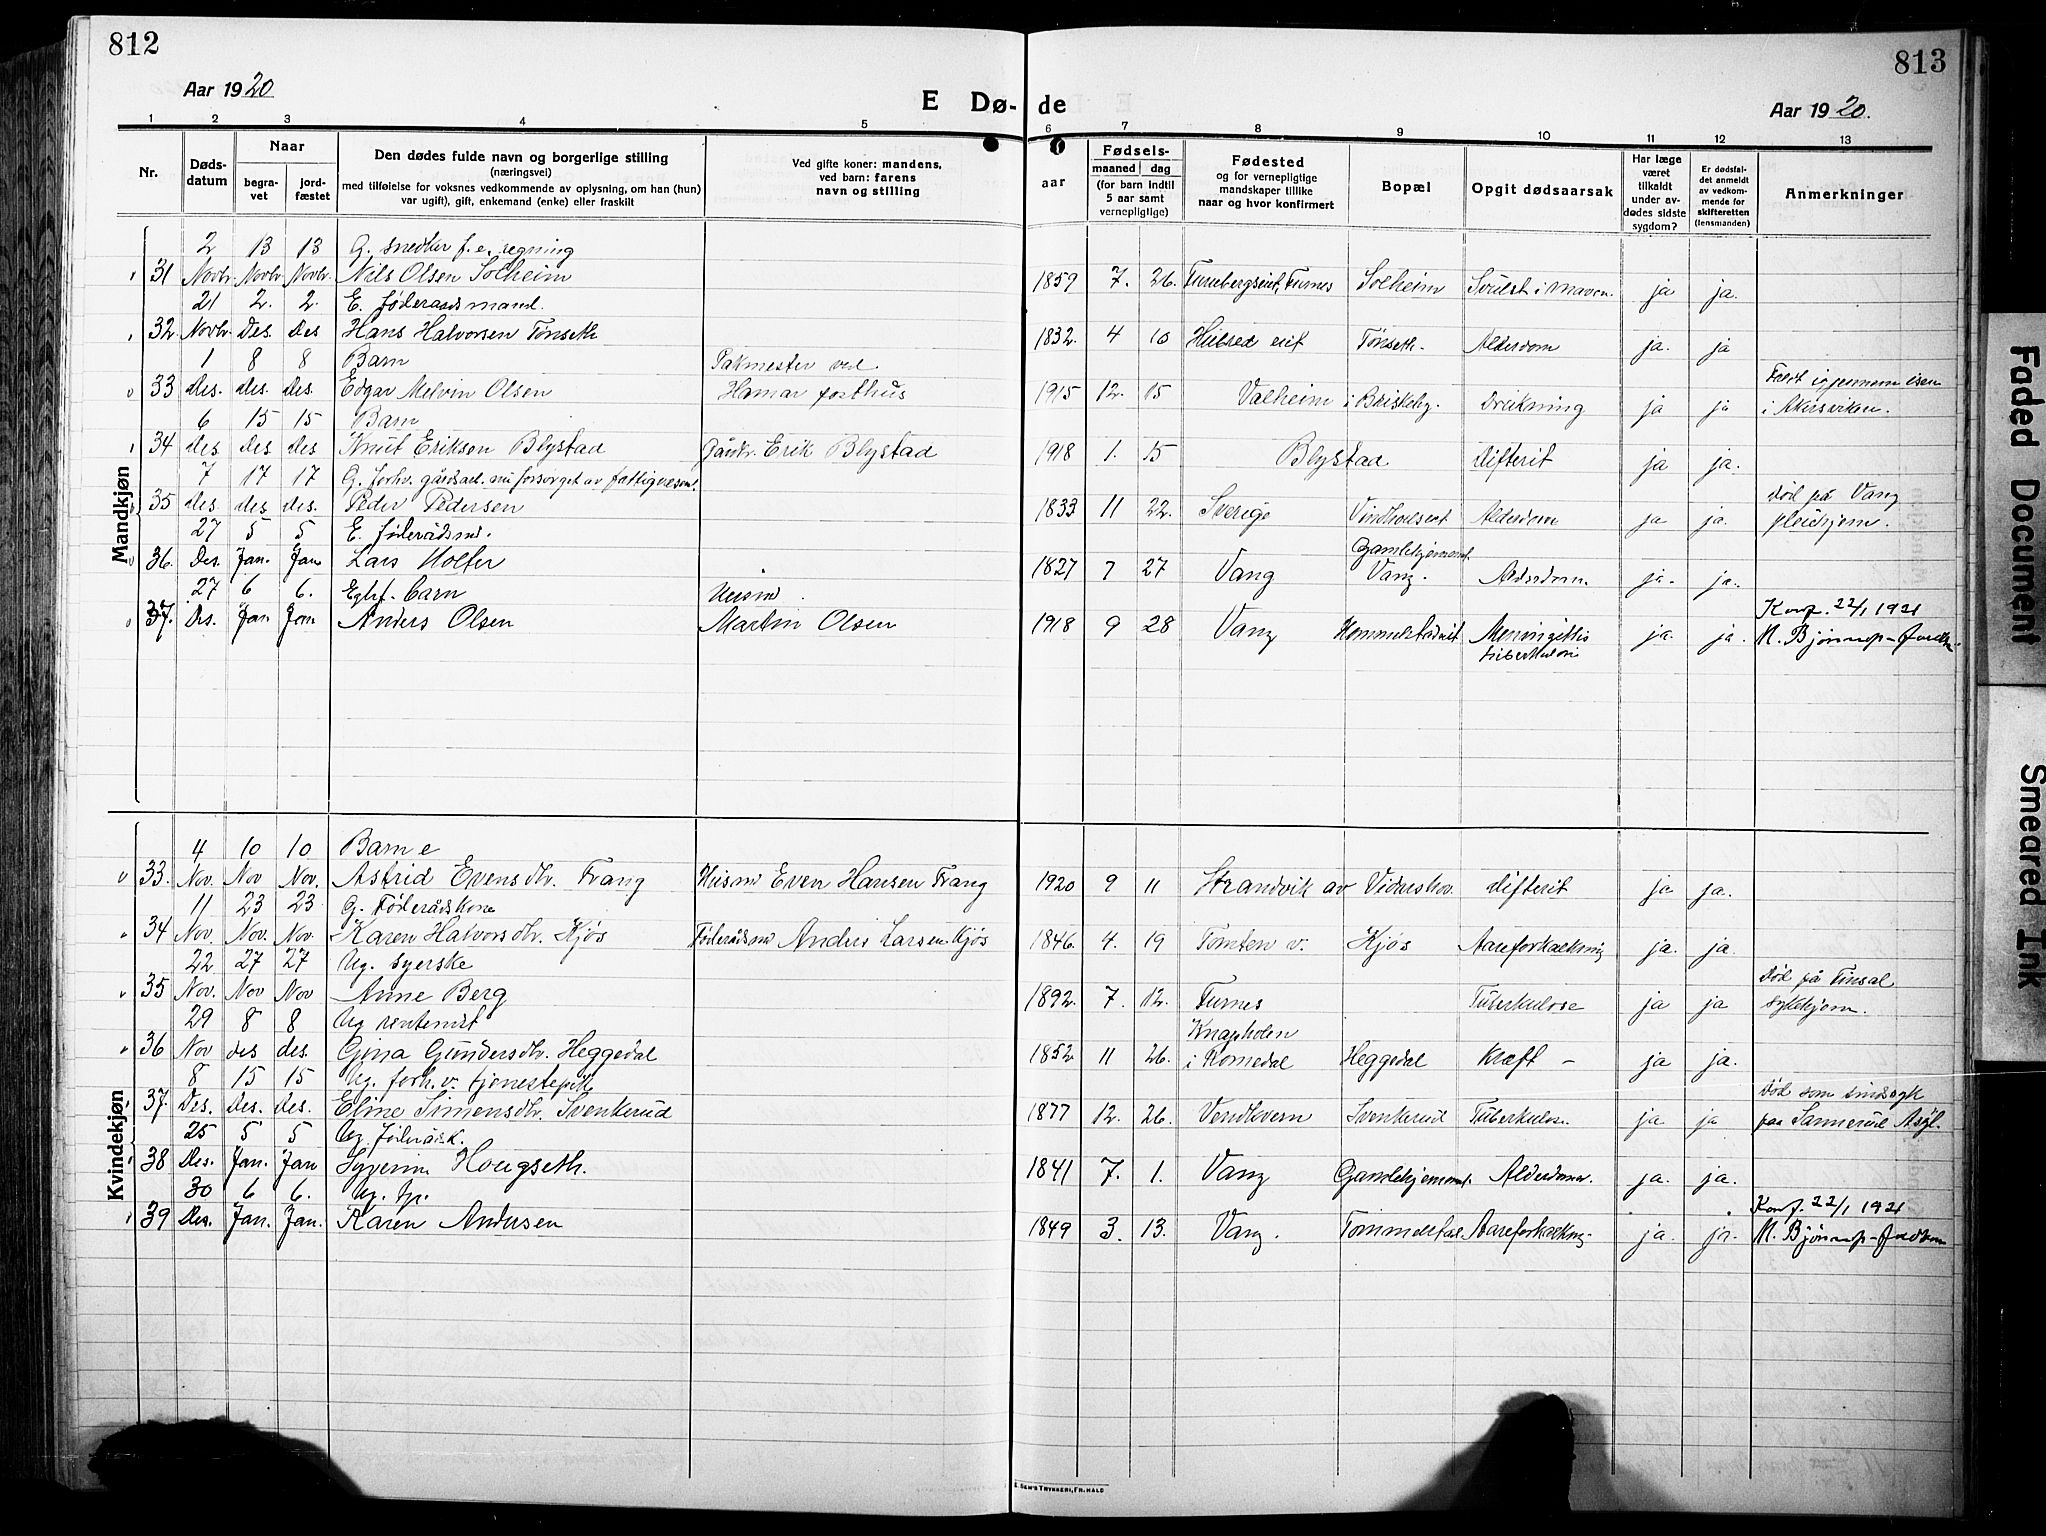 812
813
Aar 1920
E Dø- de
Aar 1920.
1 2 3 4 5 6 7 8 9 10 11 12 13
Nr.
Døds-
datum
Naar
begra-
vet
jord-
fæstet
Den dødes fulde navn og borgerlige stilling
(næringsvei)
med tilføielse for voksnes vedkommende av oplysning, om han (hun)
var ugift), gift, enkemand (enke) eller fraskilt
Ved gifte koner: mandens,
ved barn: farens
navn og stilling
Fødsels-
aar
maaned dag
(for barn indtil
5 aar samt
vernepligtige)
Fødested
og for vernepligtige
mandskaper tillike
naar og hvor konfirmert
Bopæl
Opgit dødsaarsak
Har læge
været
tilkaldt
under av-
dødes sidste
sygdom?
Er dødsfal-
det anmeldt
av vedkom-
mende for
skifteretten
(lensmanden)
Anmerkninger
Mandkjøn
2 13 13 G. snedker f. e. regning
31 Novbr. Novbr. Novbr. Nils Olsen Solheim 1859 7. 26. Furnes Solheim Svulst i maven ja ja.
21 2. 2. E. føderaadsmand.
32 Novbr. Des. Des Hans Halvorsen Tønseth 1832. 4 10 Tønseth. Alderdom ja. ja
1 8 8 Barn Pakmester ved
33 des. des. des. Edgar Melvin Olsen Hamar posthus 1915 12. 15 Valheim i Briskeby. Drukning ja ja Faldt igjennem isen
i Akersviken.
6 15 15 Barn
34 des. des des Knut Eriksen Blystad Gåndbr. Erik Blystad 1918 1. 15 Blystad difterit ja ja.
7 17 17 G. forhv. gårdsarb. nu forsørget av fattigvesenet.
35 des. des des. Peder Pedersen 1833 11 22. Sverige Alderdom ja ja. død på Vang
pleiehjem.
27 5 5 E. føderådsmd.
36. Des. Jan. Jan Lars Holter 1827 7 27 Vang Gamlehjemmet
Vang. Alderdom. ja. ja.
27 6 6. Egtef. barn Husmd.
37. Des. Jan Jan Anders Olsen Martin Olsen 1918 9 28 Vang Meningittis
tuberkulose ja. ja. Konf. 22/1 1921
N. Bjørnup-
Kvindekjøn
4 10 10 Barn e
33. Nov. Nov Nov. Astrid Evensdtr. Frang Husmd Even Hansen Frang 1920 9 11 Strandvik av Vidarshov. difterit ja ja.
11 23 23 G. Føderådskone
34 Nov. Nov. Nov. Karen Halvorsdtr. Kjøs Føderådsmd Anders Larsen Kjøs 1846. 4. 19 Tomten v. Kjøs Aareforkalkning ja. ja.
22 27 27 Ug. syerske
35 Nov. Nov Nov Anne Berg 1892. 7. 12. Furnes Tuberkulose ja ja Død på Finsal
sykehjem.
29 8 8 Ug rentenist
36 Nov des des. Gina Gundersdtr. Heggedal 1852. 11 26. Knapholen
i Romedal Heggedal Kræft - ja ja.
8 15 15 Ug. forh. v. tjenestepike
37. Des. Des. des. Eline Simensdtr. Svenkerud 1877 12. 26. Svenkerud Tuberkulose ja ja Død som sindssyk
paa Sannerud Asyl.
25 5 5 Ug. føderådsk.
38 Des. Jan. Jan Syverine Hougseth. 1841 7. 1. Vang Gamlehjemmet. Alderdom. ja. ja.
30 6 6. Ug. tp.
39 Des. Jan. Jan. Karen Andersen 1849 3. 13. Vang. Tommelstad. Aareforkalkng. ja. ja. Konf. 22/1 1921
N. Bjørnup-
Faded Document
Smeared Ink